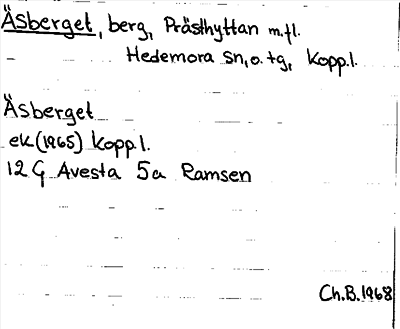 Äsberget, berg, Prästhyttan m.fl.
Hedemora sn, o. tg, Kopp.l.
Äsberget
ek (1965) Kopp.l.
12 G Avesta 5a Ramsen
Ch.B.1968